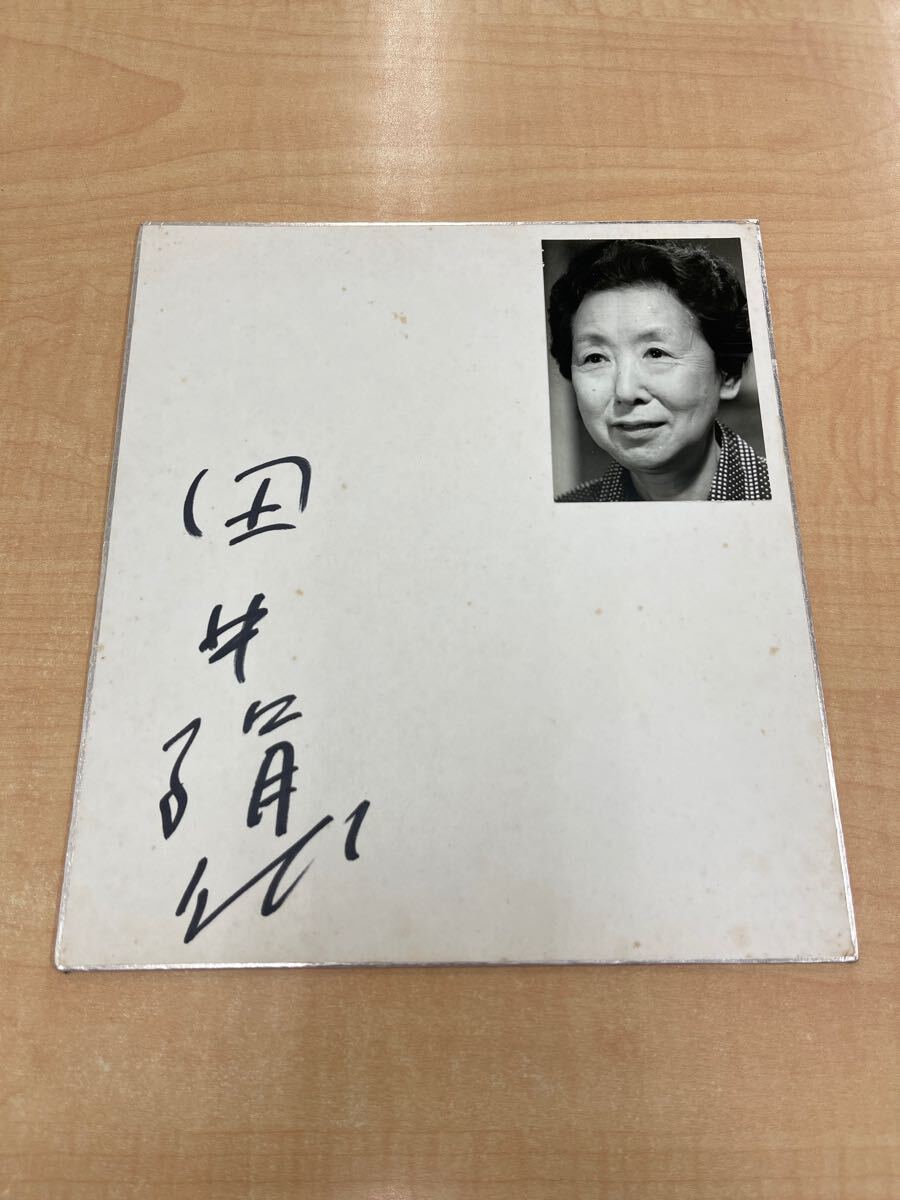 田中絹代